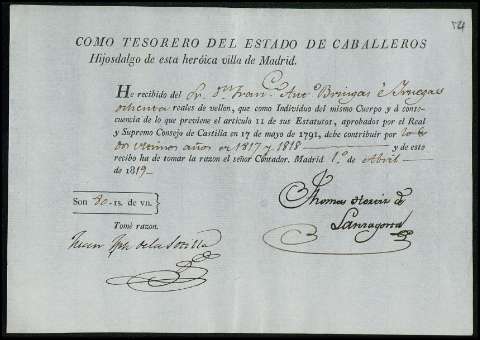 54
COMO TESORERO DEL ESTADO DE CABALLEROS
Hijosdalgo de esta heróica villa de Madrid.
He recibido del Sr. Dn. Franco. Anto. Bringas è
ochenta reales de vellon, que como Individuo del mismo Cuerpo y á conse-
cuencia de lo que previene el artículo 11 de sus Estatutos, aprobados por el Real
y Supremo Consejo de Castilla en 17 de mayo de 1791, debe contribuir por los
años de 1817 y 1818 y de este
recibo ha de tomar la razon el señor Contador. Madrid 1.º de Abril
de 1819
Son 80 rs. de vn.
Thomas de
Lanzagorta
Tomé razon.
Juan de la